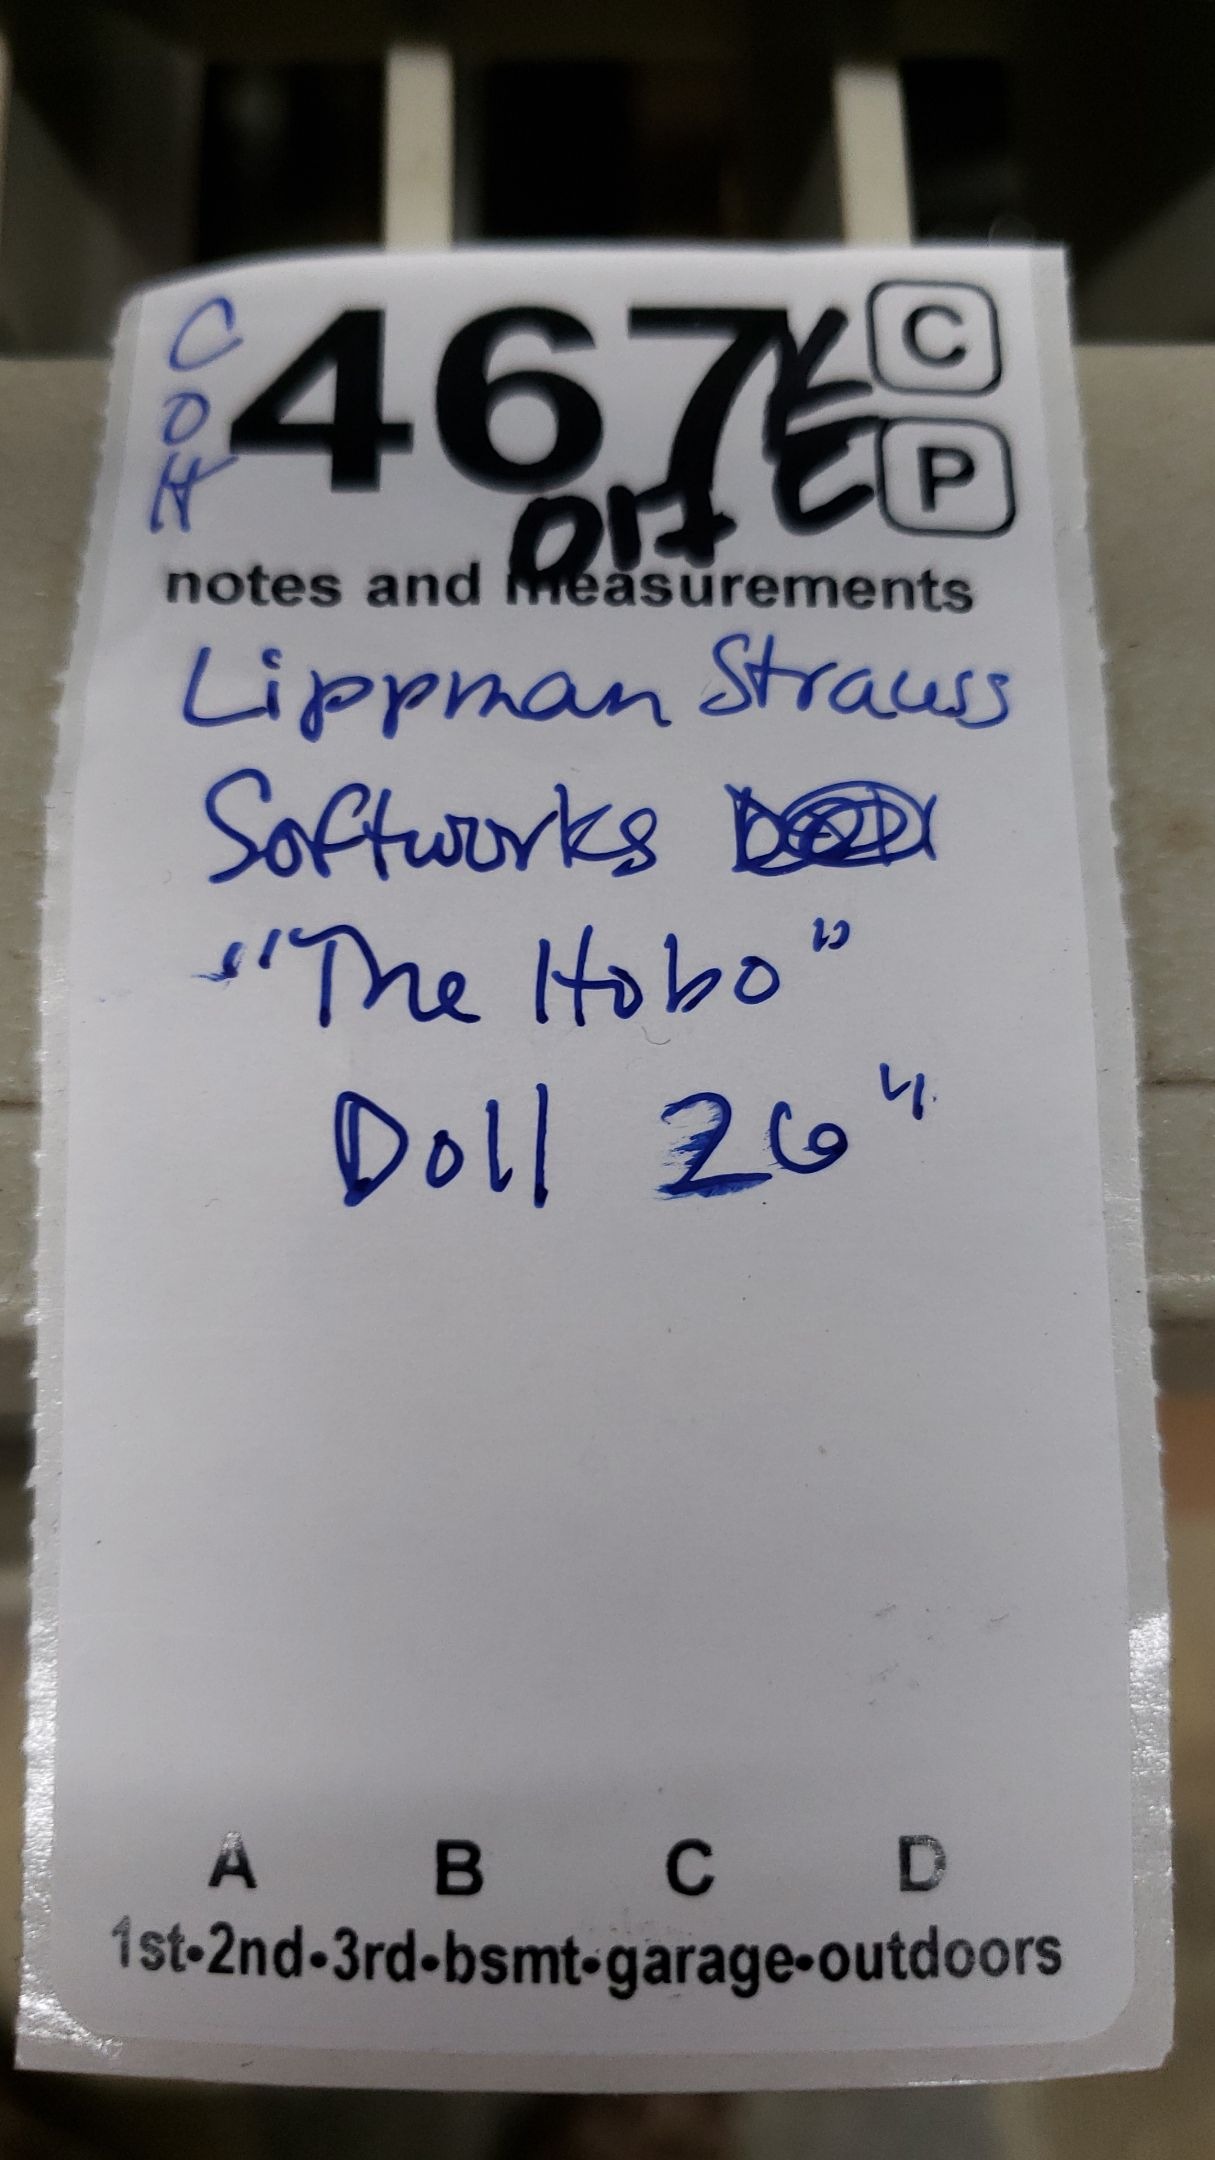 COH
467 C
P
notes and measurements
Lippman Strauss
Softworks
"The Hobo"
Doll 26"
A B C D
1st•2nd•3rd•bsmt•garage•outdoors